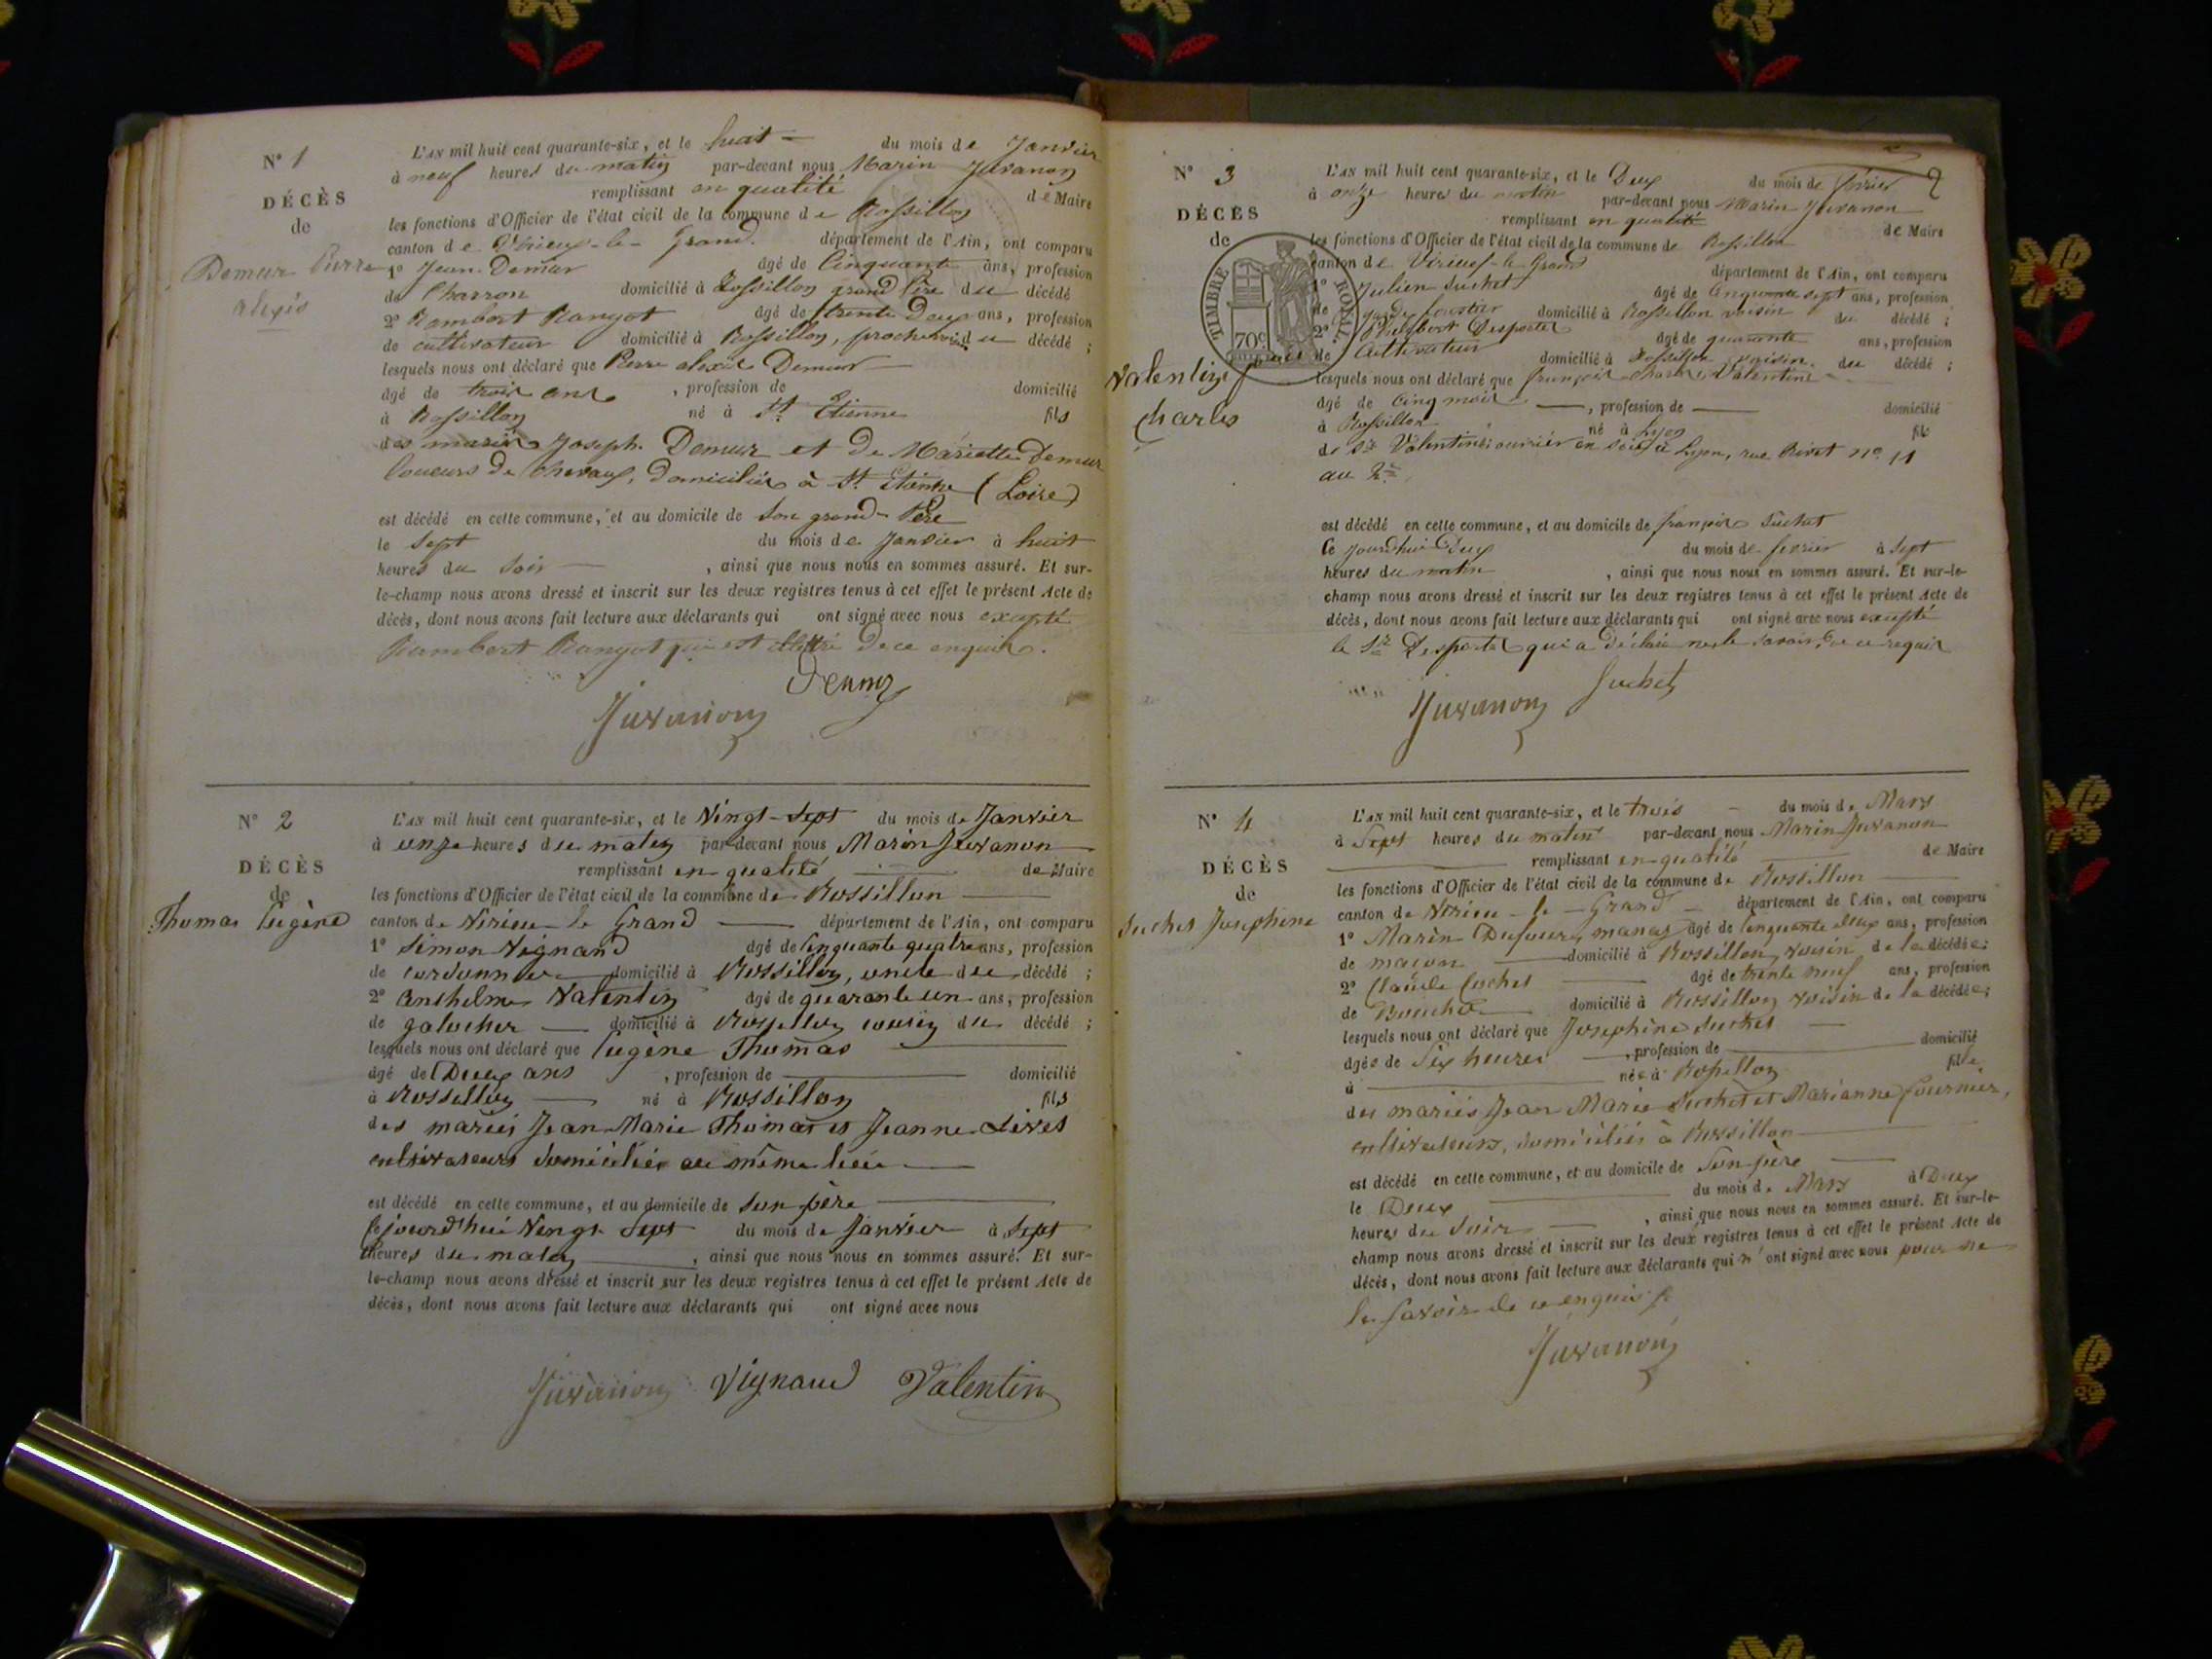 N° 1
DÉCÈS
de
Demur Pierre
alexis
L'AN mil huit cent quarante-six, et le huit du mois de Janvier
à neuf heures du matin par-devant nous Marin Juvanon
remplissant en qualité de Maire
les fonctions d'Officier de l'état civil de la commune de Rossillon
canton de Virieux-le-Grand département de l'Ain, ont comparu
1° Jean Demur âgé de Cinquante ans, profession
de Charron domicilié à Rossillon grand Père du décédé
2° Rambert Rangot âgé de trente Deux ans, profession
de cultivateur domicilié à Rossillon, proche voisin du décédé ;
lesquels nous ont déclaré que Pierre alexis Demur
âgé de trois ans , profession de domicilié
à Rossillon né à St Etienne fils
des mariés Joseph Demur et de Mariette Demur
loueurs de chevaux, domiciliés à St Etienne (Loire)
est décédé en cette commune, et au domicile de son grand-Père
le Sept du mois de Janvier à huit
heures du Soir , ainsi que nous nous en sommes assuré. Et sur-
le-champ nous avons dressé et inscrit sur les deux registres tenus à cet effet le présent Acte de
décès, dont nous avons fait lecture aux déclarants qui ont signé avec nous excepté
Rambert Rangot qui est illettré de ce enquis.
Demur
Juvanon
N° 2
DÉCÈS
de
Thomas Eugène
L'AN mil huit cent quarante-six, et le Vingt-Sept du mois de Janvier
à onze heures du matin par-devant nous Marin Juvanon
remplissant en qualité de Maire
les fonctions d'Officier de l'état civil de la commune de Rossillon
canton de Virieu-le Grand département de l'Ain, ont comparu
1° Simon Vignand âgé de Cinquante quatre ans, profession
de cordonnier domicilié à Rossillon, oncle du décédé ;
2° Anthelme Valentin âgé de quarante un ans, profession
de galocher domicilié à Rossillon cousin du décédé ;
lesquels nous ont déclaré que Eugène Thomas
âgé de Deux ans , profession de domicilié
à Rossillon né à Rossillon fils
des mariés Jean Marie Thomas et Jeanne Livet
cultivateurs domiciliés au même lieu
est décédé en cette commune, et au domicile de Son père
Cejourd'hui Vingt Sept du mois de Janvier à Sept
heures du matin , ainsi que nous nous en sommes assuré. Et sur-
le-champ nous avons dressé et inscrit sur les deux registres tenus à cet effet le présent Acte de
décès, dont nous avons fait lecture aux déclarants qui ont signé avec nous
Juvanon Vignand Valentin
2
N° 3
DÉCÈS
de
Valentin françois
Charles
TIMBRE ROYAL
70c
L'AN mil huit cent quarante-six, et le Deux du mois de février
à onze heures du matin par-devant nous Marin Juvanon
remplissant en qualité de Maire
les fonctions d'Officier de l'état civil de la commune de Rossillon
canton de Virieux-le Grand département de l'Ain, ont comparu
1° Julien Suchet âgé de Cinquante sept ans, profession
de garde forestier domicilié à Rossillon voisin du décédé ;
2° Desportes âgé de quarante ans, profession
de Cultivateur domicilié à Rossillon, voisin du décédé ;
lesquels nous ont déclaré que françois Charles Valentin
âgé de Cinq mois , profession de domicilié
à Rossillon né à Lyon fils
de Sr Valentin ouvrier en soies à Lyon, rue Rivet n° 11
au 2me
est décédé en cette commune, et au domicile de françois Suchet
Ce jourd'hui Deux du mois de fevrier à Sept
heures du matin , ainsi que nous nous en sommes assuré. Et sur-le-
champ nous avons dressé et inscrit sur les deux registres tenus à cet effet le présent Acte de
décès, dont nous avons fait lecture aux déclarants qui ont signé avec nous excepté
le Sr Desportes qui a déclaré ne le savoir, de ce requis
Juvanon Suchet
N° 4
DÉCÈS
de
Suchet Josephine
L'AN mil huit cent quarante-six, et le trois du mois de Mars
à Sept heures du matin par-devant nous Marin Juvanon
remplissant en qualité de Maire
les fonctions d'Officier de l'état civil de la commune de Rossillon
canton de Virieu-le-Grand département de l'Ain, ont comparu
1° Marin Dufour, âgé de Cinquante deux ans, profession
de maçon domicilié à Rossillon, voisin de la décédée ;
2° Claude Cochet âgé de trente neuf ans, profession
de Boucher domicilié à Rossillon voisin de la décédée ;
lesquels nous ont déclaré que Josephine Suchet
âgée de Six heures , profession de domicilié
à née à Rossillon fille
des mariés Jean Marie Suchet et Marianne fournier,
cultivateurs, domiciliés à Rossillon
est décédé en cette commune, et au domicile de Son père
le Deux du mois de Mars à Deux
heures du Soir , ainsi que nous nous en sommes assuré. Et sur-le-
champ nous avons dressé et inscrit sur les deux registres tenus à cet effet le présent Acte de
décès, dont nous avons fait lecture aux déclarants qui n'ont signé avec nous pour ne
le savoir de ce enquis
Juvanon